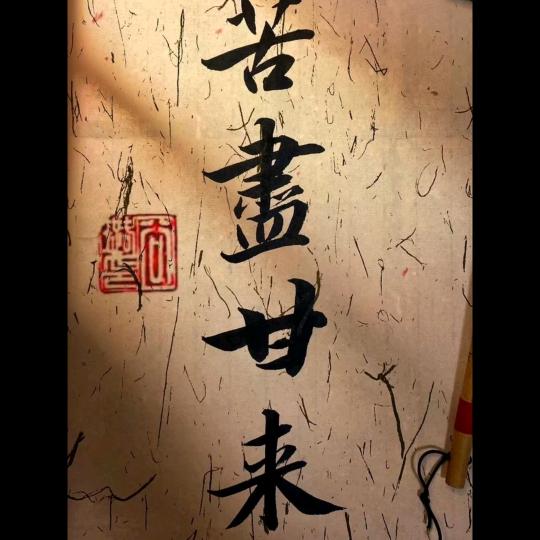 苦盡甘来